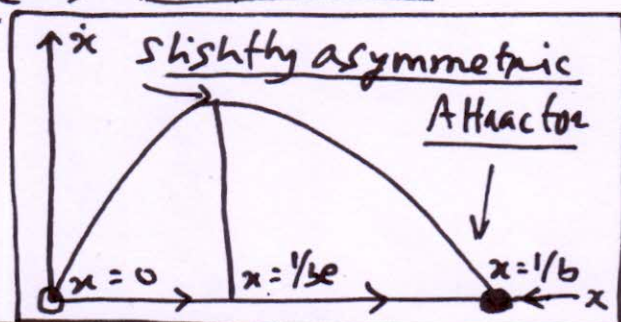 ẋ
slishtly asymmetric
Attractor
x = 0
x = 1/be
x = 1/b
x